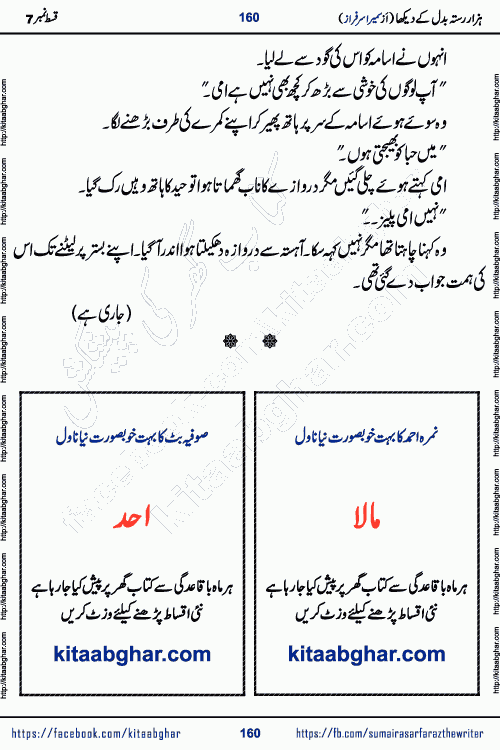 ہزار رستہ بدل کے دیکھا (از سمیرا سرفراز) 160 قسط نمبر 7
انہوں نے اسامہ کو اس کی گود سے لے لیا۔
"آپ لوگوں کی خوشی سے بڑھ کر کچھ بھی نہیں ہے امی۔"
وہ سوئے ہوئے اسامہ کے سر پر ہاتھ پھیر کر اپنے کمرے کی طرف بڑھنے لگا۔
"میں حبا کو بھیجتی ہوں۔"
امی کہتے ہوئے چلی گئیں مگر دروازے کا ناب گھماتا ہوا توحید کا ہاتھ وہیں رک گیا۔
"نہیں امی پلیز۔۔"
وہ کہنا چاہتا تھا مگر نہیں کہہ سکا۔ آہستہ سے دروازہ دھکیلتا ہوا اندر آ گیا۔ اپنے بستر پر لیٹنے تک اس
کی ہمت جواب دے گئی تھی۔
(جاری ہے)
نمرہ احمد کا بہت خوبصورت نیا ناول
مالا
ہر ماہ باقاعدگی سے کتاب گھر پر پیش کیا جا رہا ہے
نئی اقساط پڑھنے کیلئے وزٹ کریں
kitaabghar.com
صوفیہ بٹ کا بہت خوبصورت نیا ناول
احد
ہر ماہ باقاعدگی سے کتاب گھر پر پیش کیا جا رہا ہے
نئی اقساط پڑھنے کیلئے وزٹ کریں
kitaabghar.com
https://facebook.com/kitaabghar 160 https://fb.com/sumairasarfarazthewriter
http://kitaabghar.com http://kitaabghar.com http://kitaabghar.com http://kitaabghar.com http://kitaabghar.com http://kitaabghar.com http://kitaabghar.com http://kitaabghar.com
http://kitaabghar.com http://kitaabghar.com http://kitaabghar.com http://kitaabghar.com http://kitaabghar.com http://kitaabghar.com http://kitaabghar.com http://kitaabghar.com